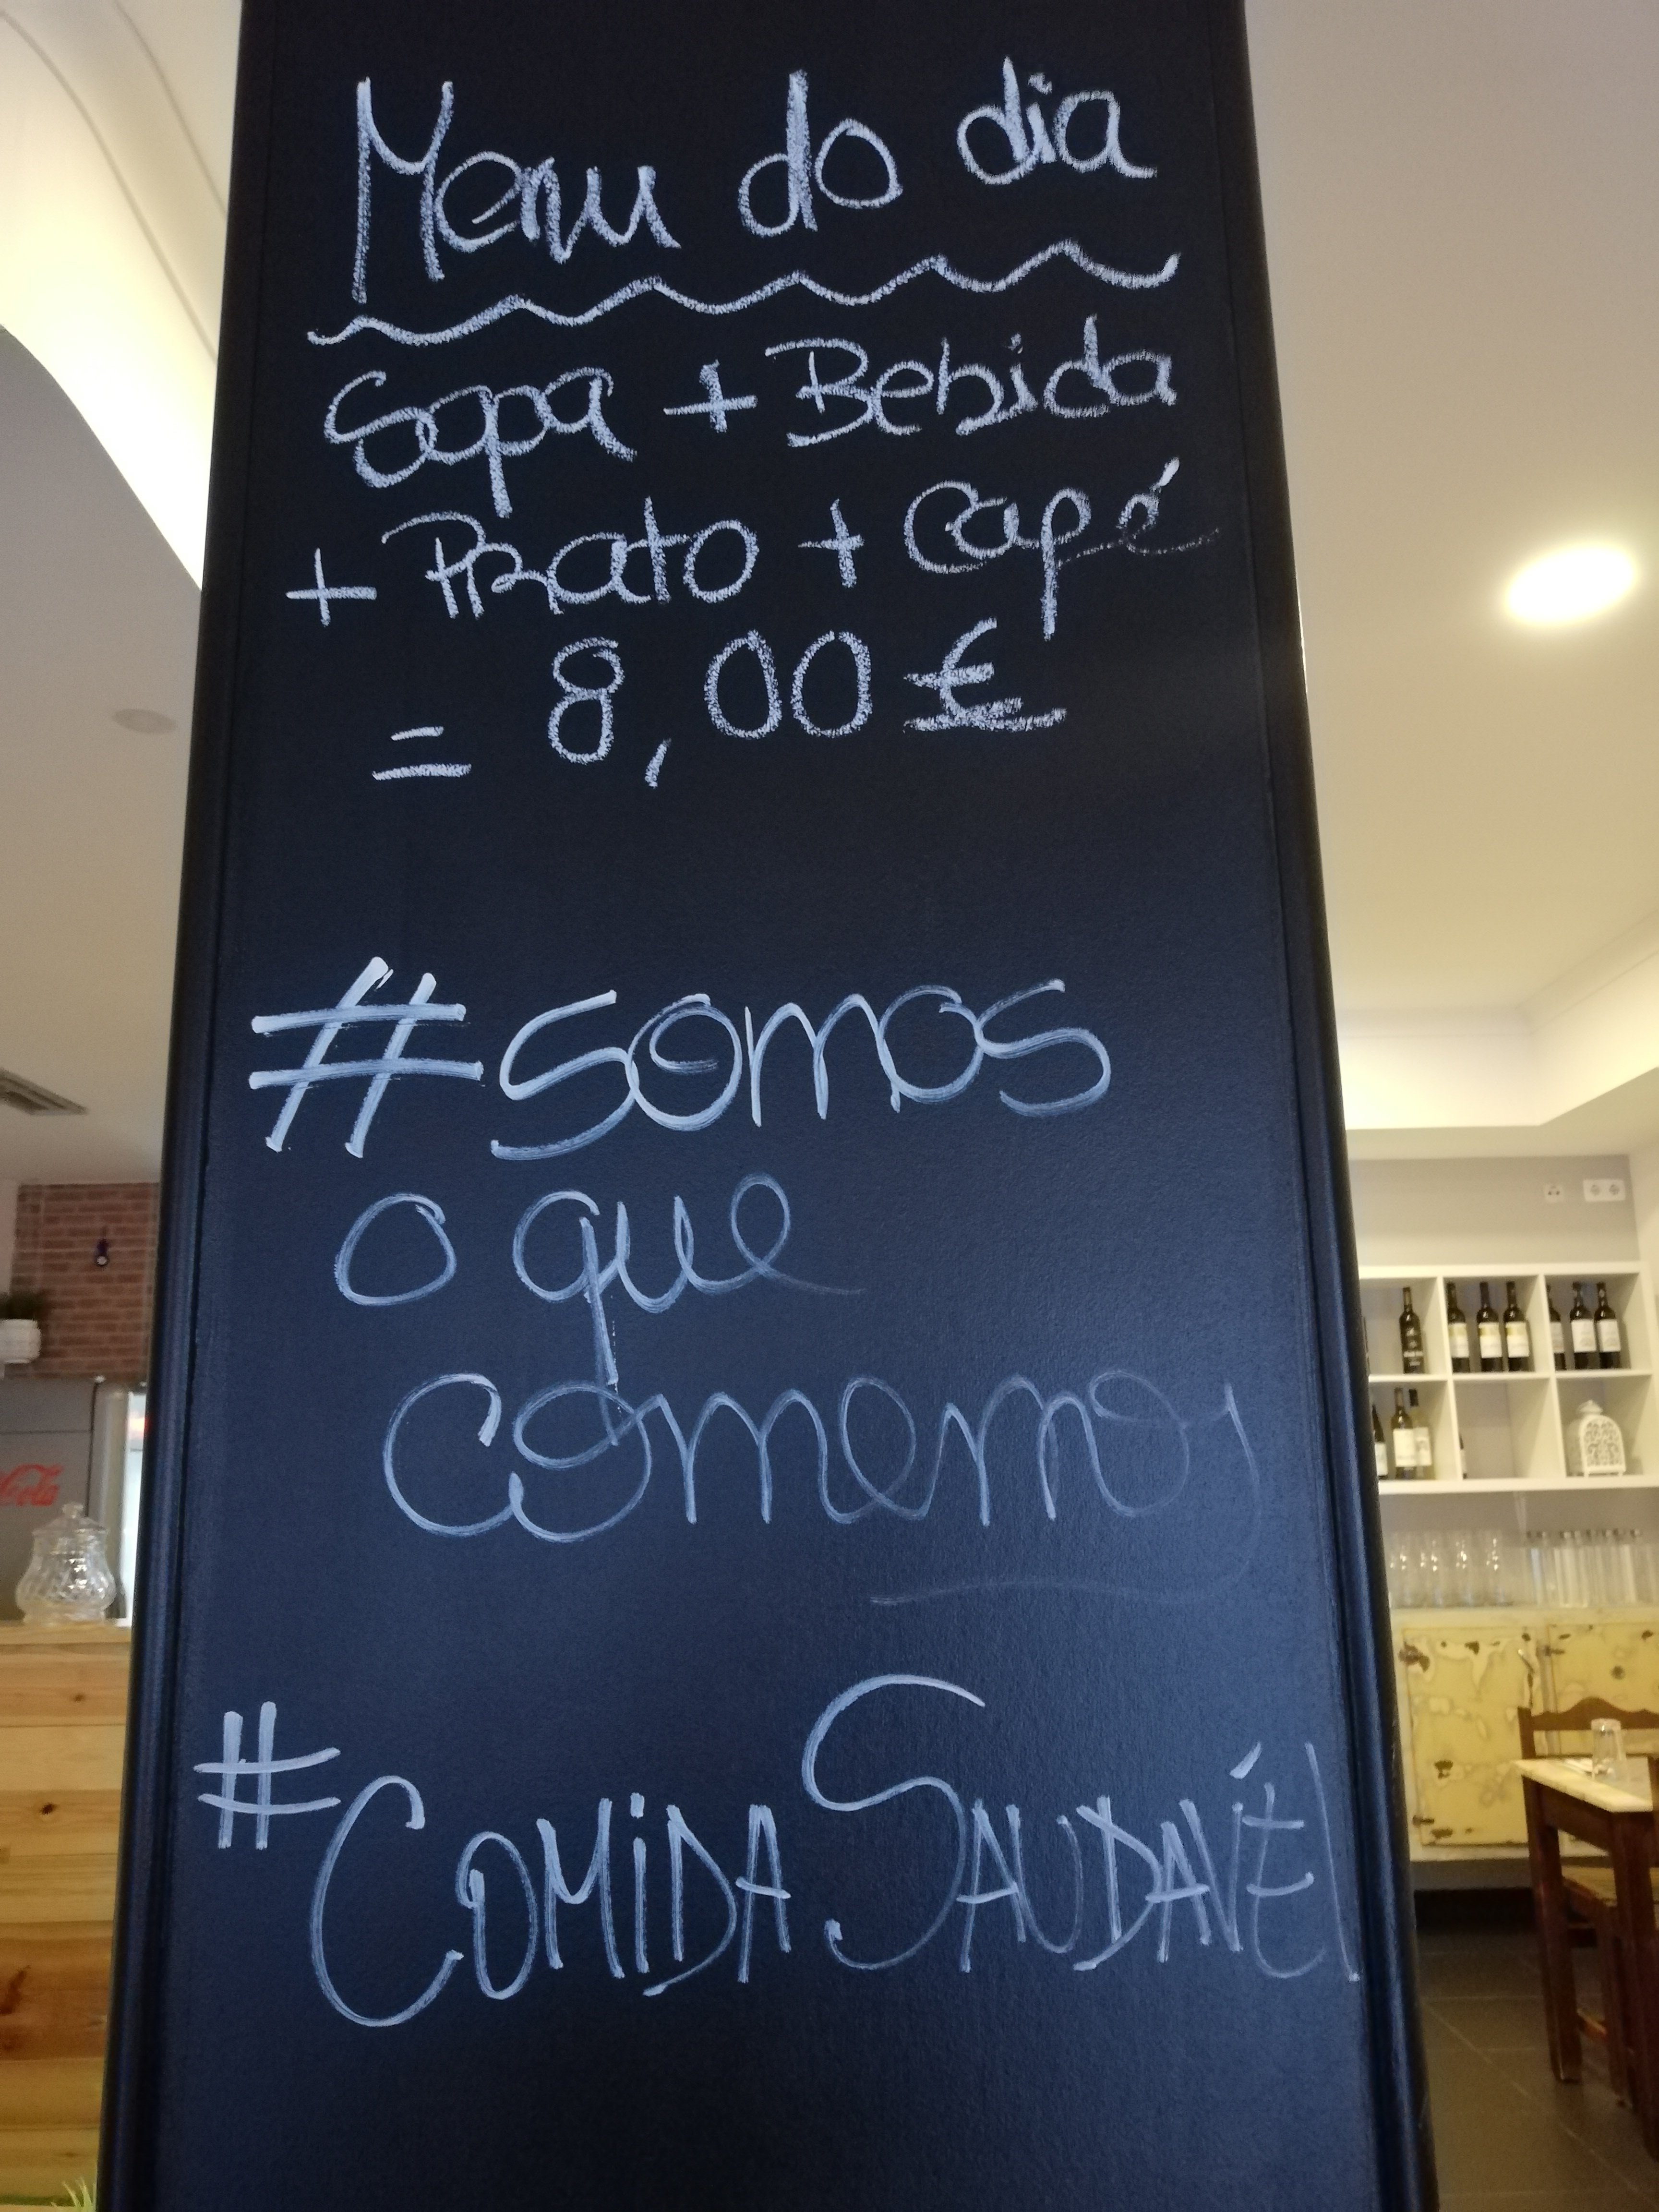 Menu do dia
Sopa + Bebida
+ Prato + Café
= 8,00 €
#somos
o que
comemos
#COMIDA SAUDAVÉl
Cola